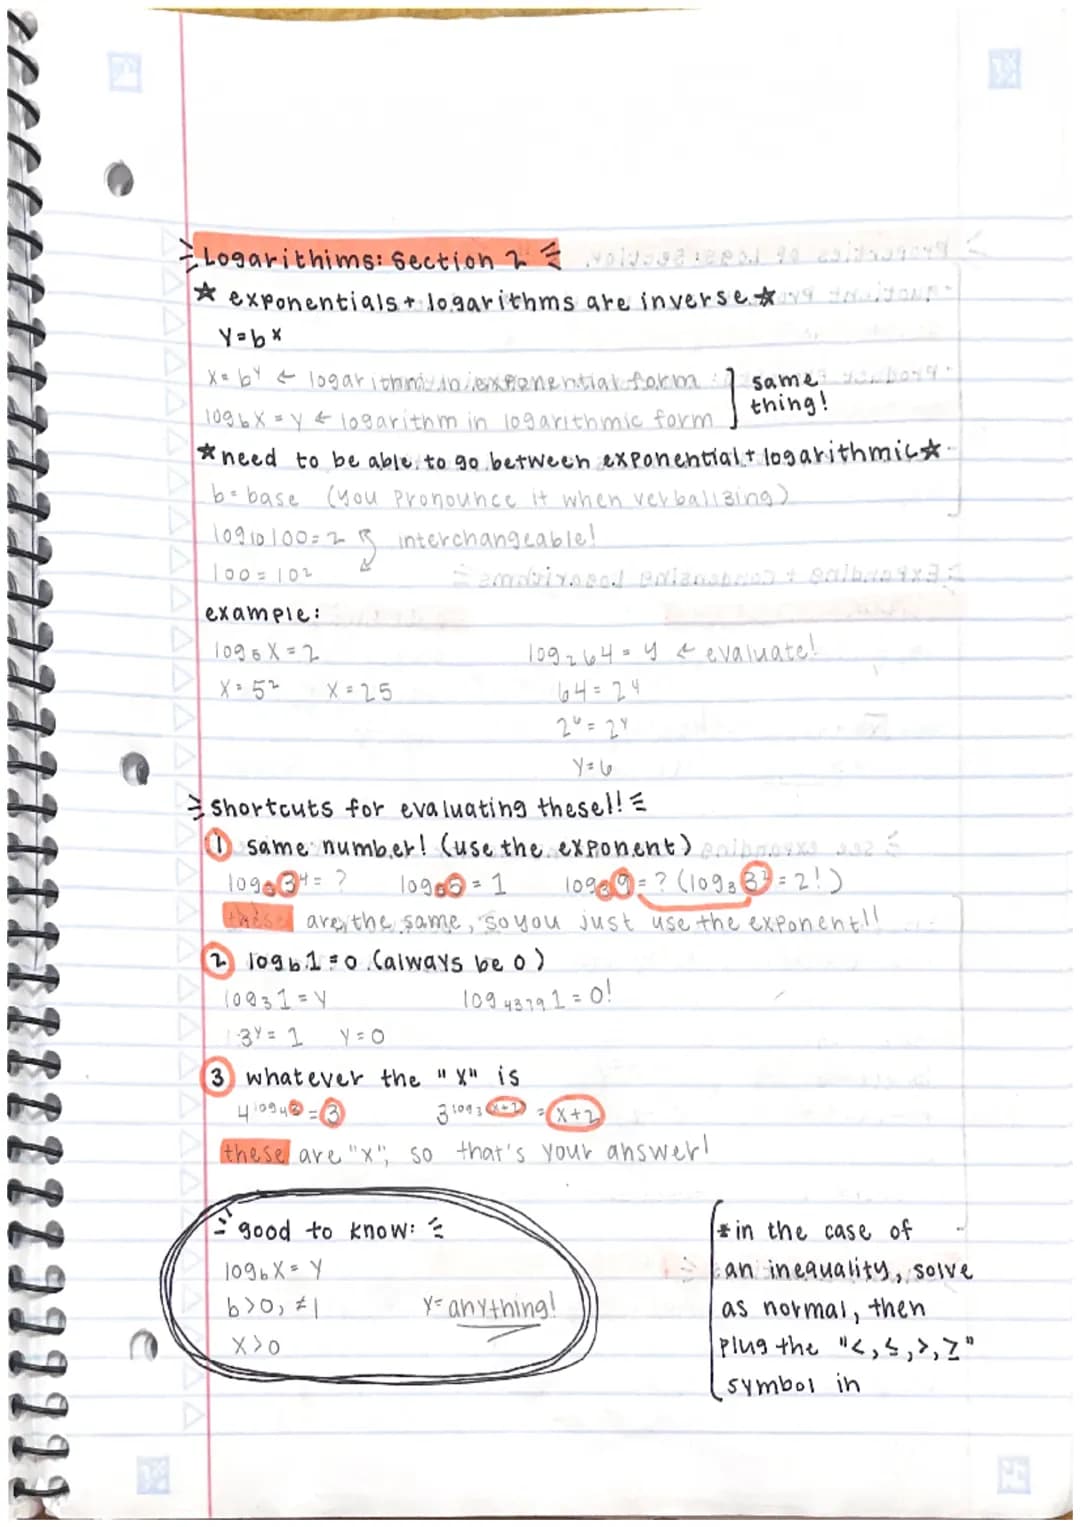 Logarithims: Section 2
★ exponentials + logarithms are inverse ★
Y=bˣ
X=bʸ ← logarithm in exponential form
log_b X = Y ← logarithm in logarithmic form
same thing!
★ need to be able to go between exponential + logarithmic ★
b=base (you pronounce it when verbalizing)
log₁₀100=2
100=10²
interchangeable!
example:
log₅X=2
X=5² X=25
log₂64=y ← evaluate!
64=2ʸ
2⁶=2ʸ
Y=6
shortcuts for evaluating these!!
① same number! (use the exponent)
log₃3⁴=? log₅5=1 log₃9=? (log₃3²=2!)
these are the same, so you just use the exponent!!
② log_b 1=0 (always be 0)
log₃1=Y log₄₃₇₉1=0!
3ʸ=1 Y=0
③ whatever the "X" is
4^log₄3=3 3^log₃(x+2)=x+2
these are "x", so that's your answer!
good to know:
log_b X=Y
b>0, ≠1 Y=anything!
X>0
*in the case of
an inequality, solve
as normal, then
plug the "<,≤,>,≥"
symbol in